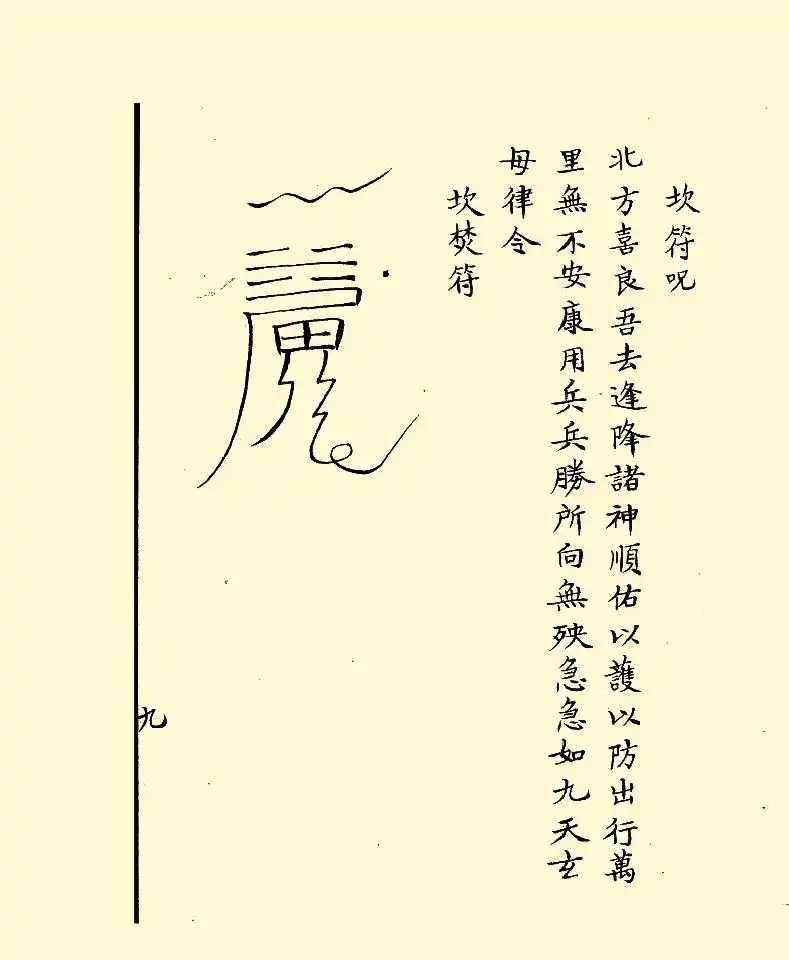 坎符呪
北方喜良吾去逢降諸神順佑以護以防出行萬
里無不安康用兵兵勝所向無殃急急如九天玄
母律令
坎焚符
九